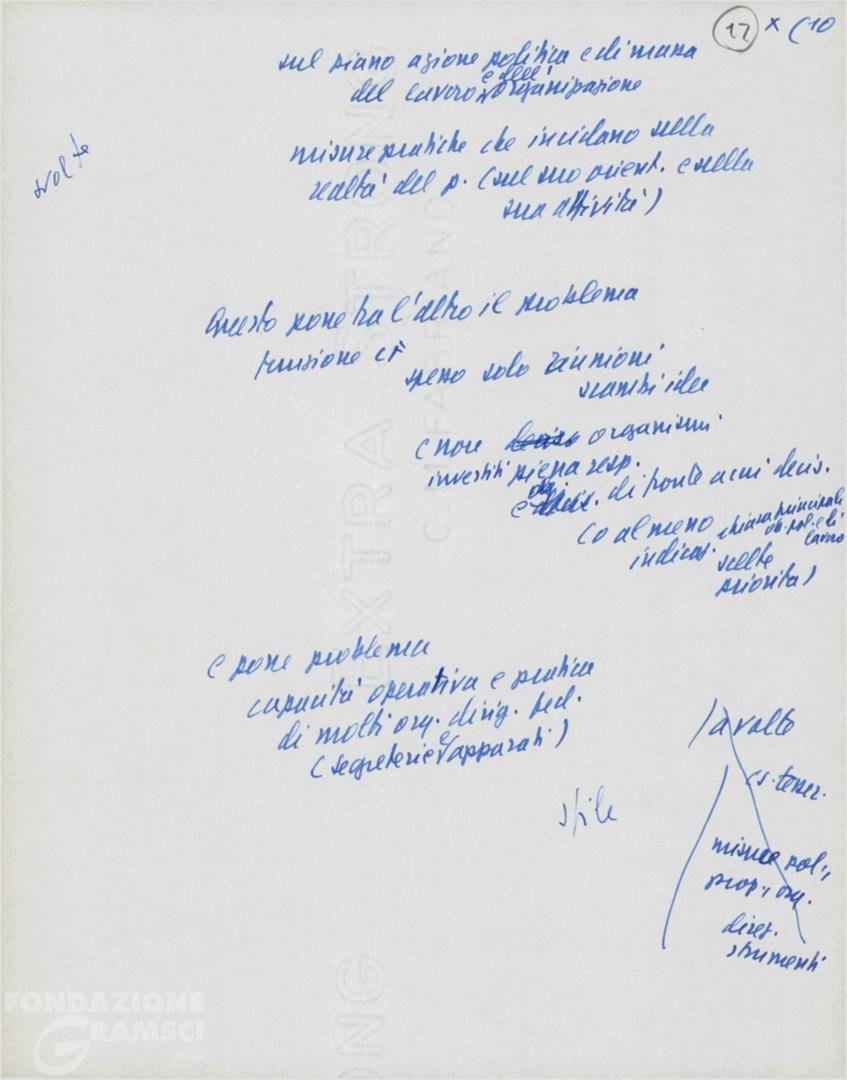 17 x (10
sul piano azione politica e di massa
del lavoro e dell'organizzazione
svolte
misure pratiche che incidano sulla
realtà del p. (sul suo orient. e sulla
sua attività)
Questo pone tra l'altro il problema
funzione CF
spesso solo riunioni
scambi idee
e non organismi
investiti piena resp.
e di fronte a cui decis.
(o almeno chiara principali
indicaz. ob. pol. e di
lavoro
scelte
priorità)
e pone problema
capacità operativa e pratica
di molti org. dirig. fed.
(segreterie e apparati)
stile
a volte
es. tesser.
misure pol.,
prop., org.
strumenti
EXTRA STRONG
C M FABRIANO
ONG
FONDAZIONE
GRAMSCI
onlus